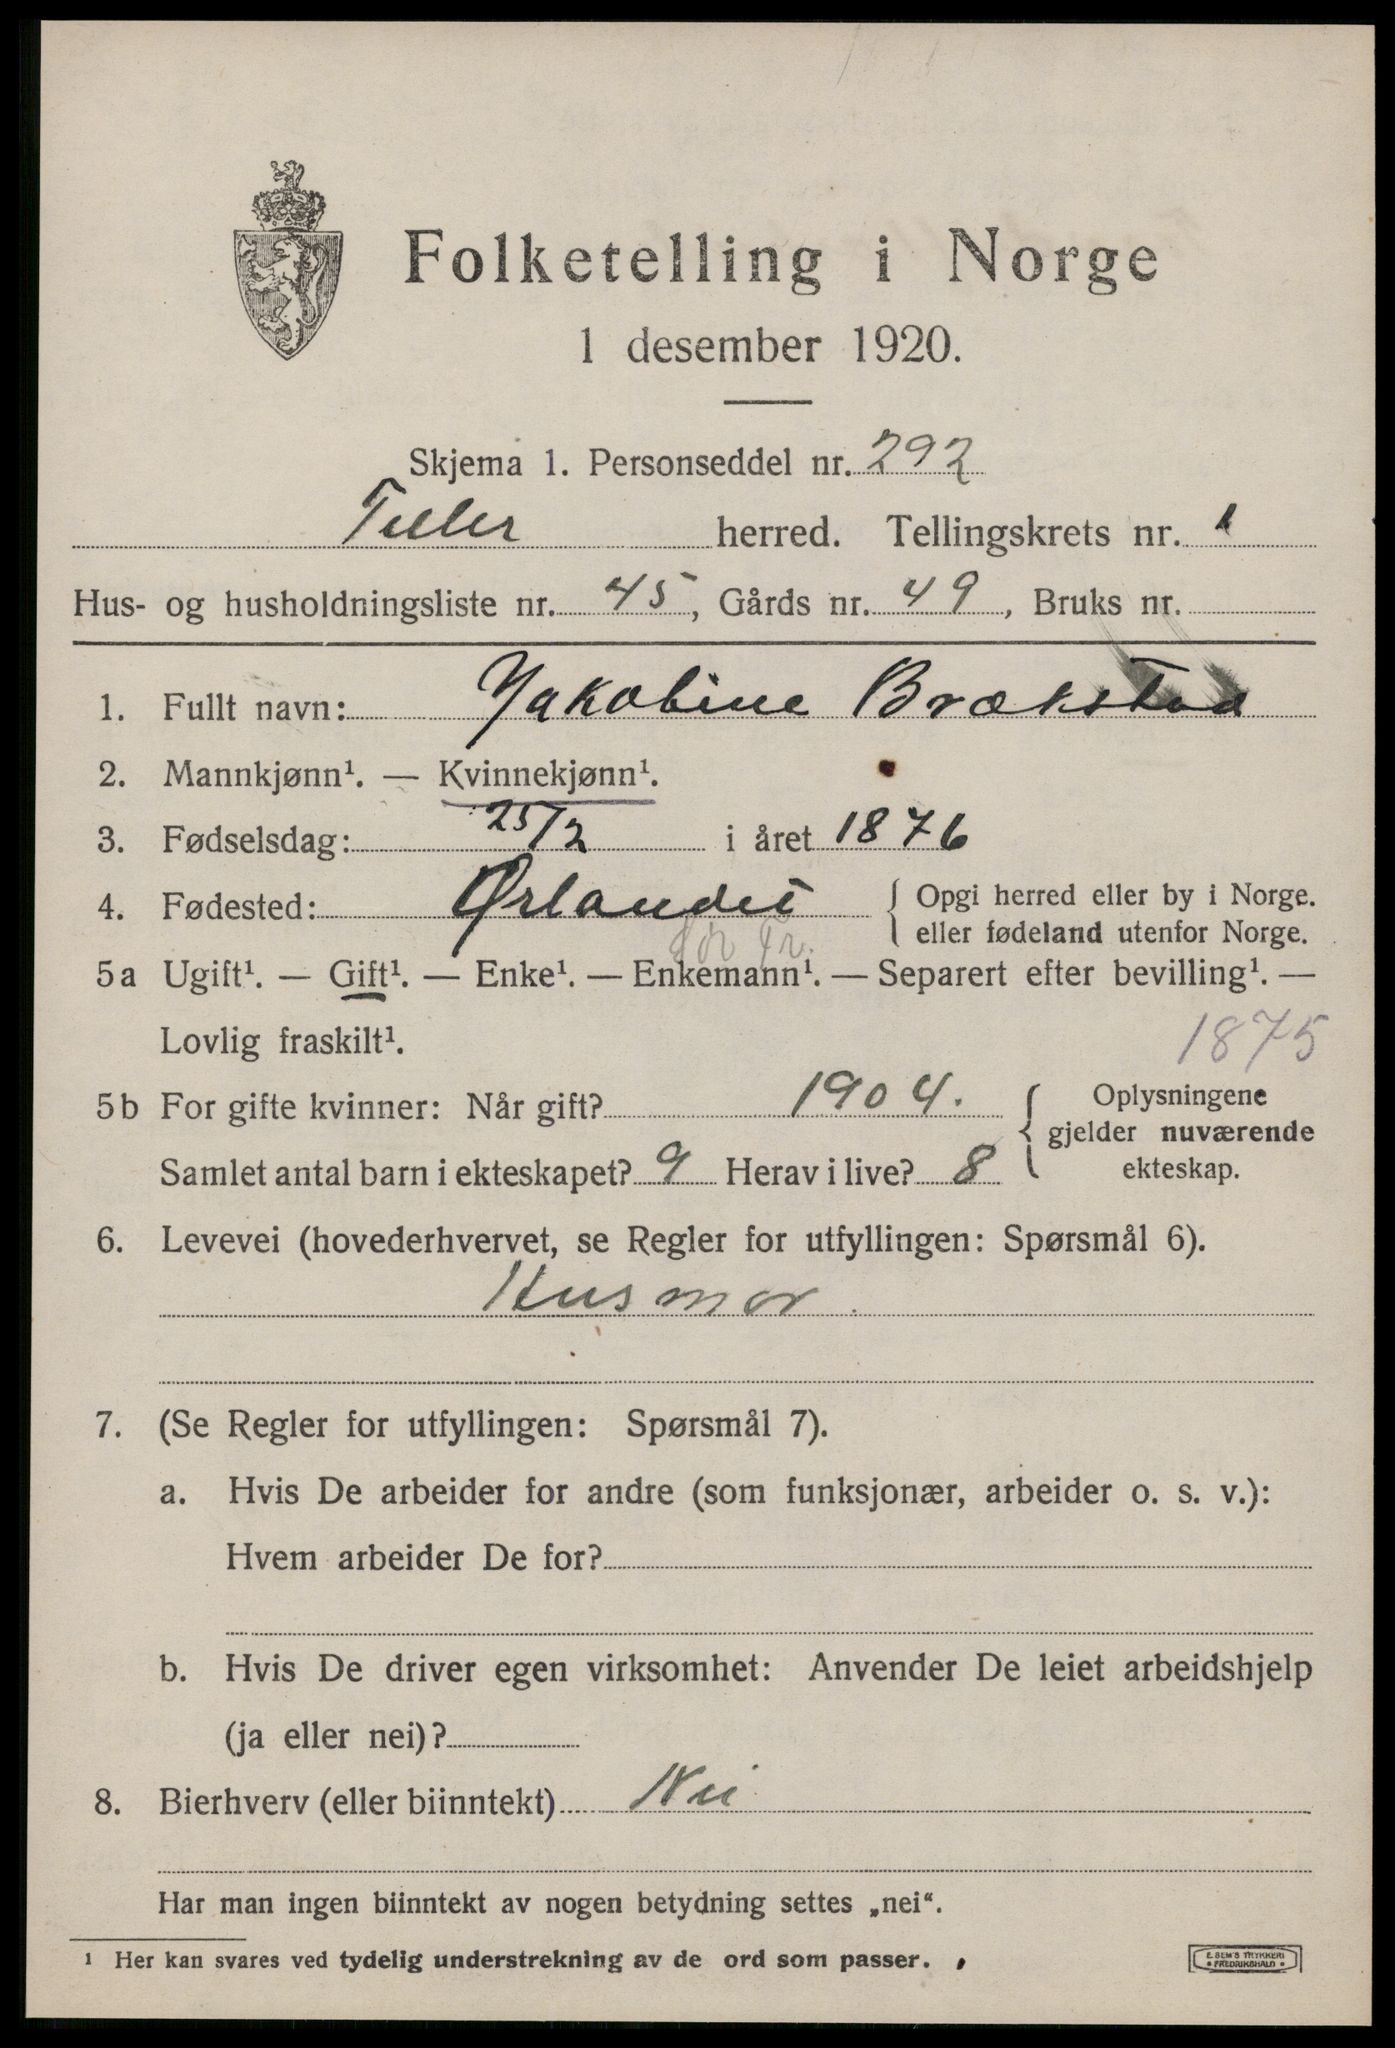 Folketelling i Norge
1 desember 1920.
Skjema 1. Personseddel nr. 292
Tiller herred. Tellingskrets nr. 1
Hus- og husholdningsliste nr. 45, Gårds nr. 49, Bruks nr.
1. Fullt navn: Jakobine Brækstad
2. Mannkjønn¹. — Kvinnekjønn¹.
3. Fødselsdag: 25/2 i året 1876
4. Fødested: Ørlandet { Opgi herred eller by i Norge.
eller fødeland utenfor Norge.
Sør Tr.
5a Ugift¹. — Gift¹. — Enke¹. — Enkemann¹. — Separert efter bevilling¹. —
Lovlig fraskilt¹. 1875
5b For gifte kvinner: Når gift? 1904. { Oplysningene
gjelder nuværende
Samlet antal barn i ekteskapet? 9 Herav i live? 8 ekteskap.
6. Levevei (hovederhvervet, se Regler for utfyllingen: Spørsmål 6).
Husmor.
7. (Se Regler for utfyllingen: Spørsmål 7).
a. Hvis De arbeider for andre (som funksjonær, arbeider o. s. v.):
Hvem arbeider De for?
b. Hvis De driver egen virksomhet: Anvender De leiet arbeidshjelp
(ja eller nei)?
8. Bierhverv (eller biinntekt) Nei
Har man ingen biinntekt av nogen betydning settes „nei“.
¹ Her kan svares ved tydelig understrekning av de ord som passer.
E. SEM'S TRYKKERI
• FREDRIKSHALD •